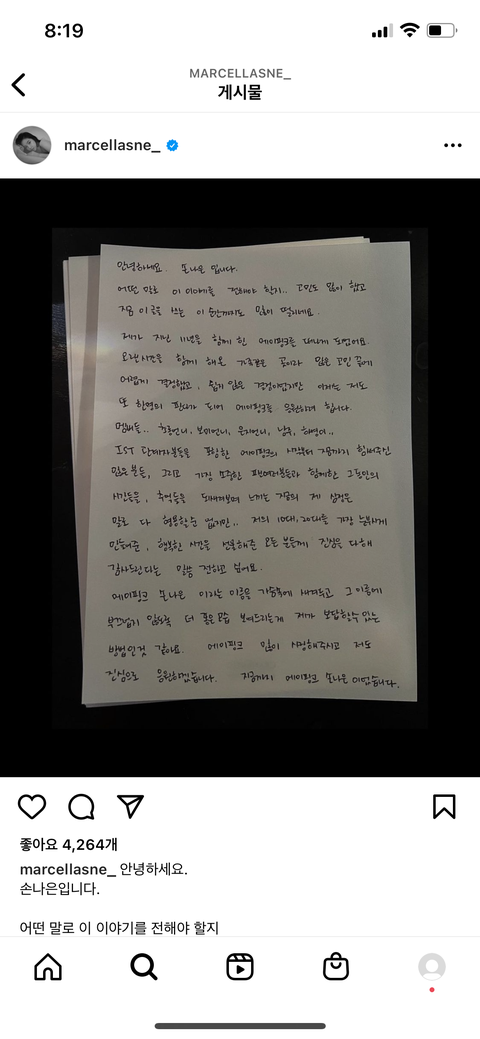 8:19
MARCELLASNE_
게시물
marcellasne_
안녕하세요. 손나은 입니다.
어떤 말로 이 이야기를 전해야 할지.. 고민도 많이 했고
지금 이 글을 쓰는 이 순간까지도 많이 떨리네요.
제가 지난 11년을 함께 한 에이핑크를 떠나게 되었어요.
오랜시간을 함께 해온 가족같은 곳이라 많은 고민 끝에
어렵게 결정했고, 쉽지 않은 결정이었지만 이제는 저도
또 한명의 판다가 되어 에이핑크를 응원하려 합니다.
멤버들.. 초롱언니, 보미언니, 은지언니, 남주, 하영이..
IST 관계자분들을 포함한 에이핑크의 시작부터 지금까지 함께해주신
많은 분들, 그리고 가장 소중한 팬여러분들과 함께한 그동안의
시간들을, 추억들을 되새겨보며 느끼는 지금의 제 심정은
말로 다 형용할순 없지만.. 저의 10대, 20대를 가장 눈부시게
만들어준, 행복한 시간을 선물해준 모든 분들께 진심을 다해
감사드린다는 말씀 전하고 싶어요.
에이핑크 손나은 이라는 이름을 가슴속에 새겨두고, 그 이름에
부끄럽지 않도록 더 좋은 모습 보여드리는게 제가 보답할수 있는
방법인것 같아요. 에이핑크 많이 사랑해주시고 저도
진심으로 응원하겠습니다. 지금까지 에이핑크 손나은 이었습니다.
좋아요 4,264개
marcellasne_ 안녕하세요.
손나은입니다.
어떤 말로 이 이야기를 전해야 할지